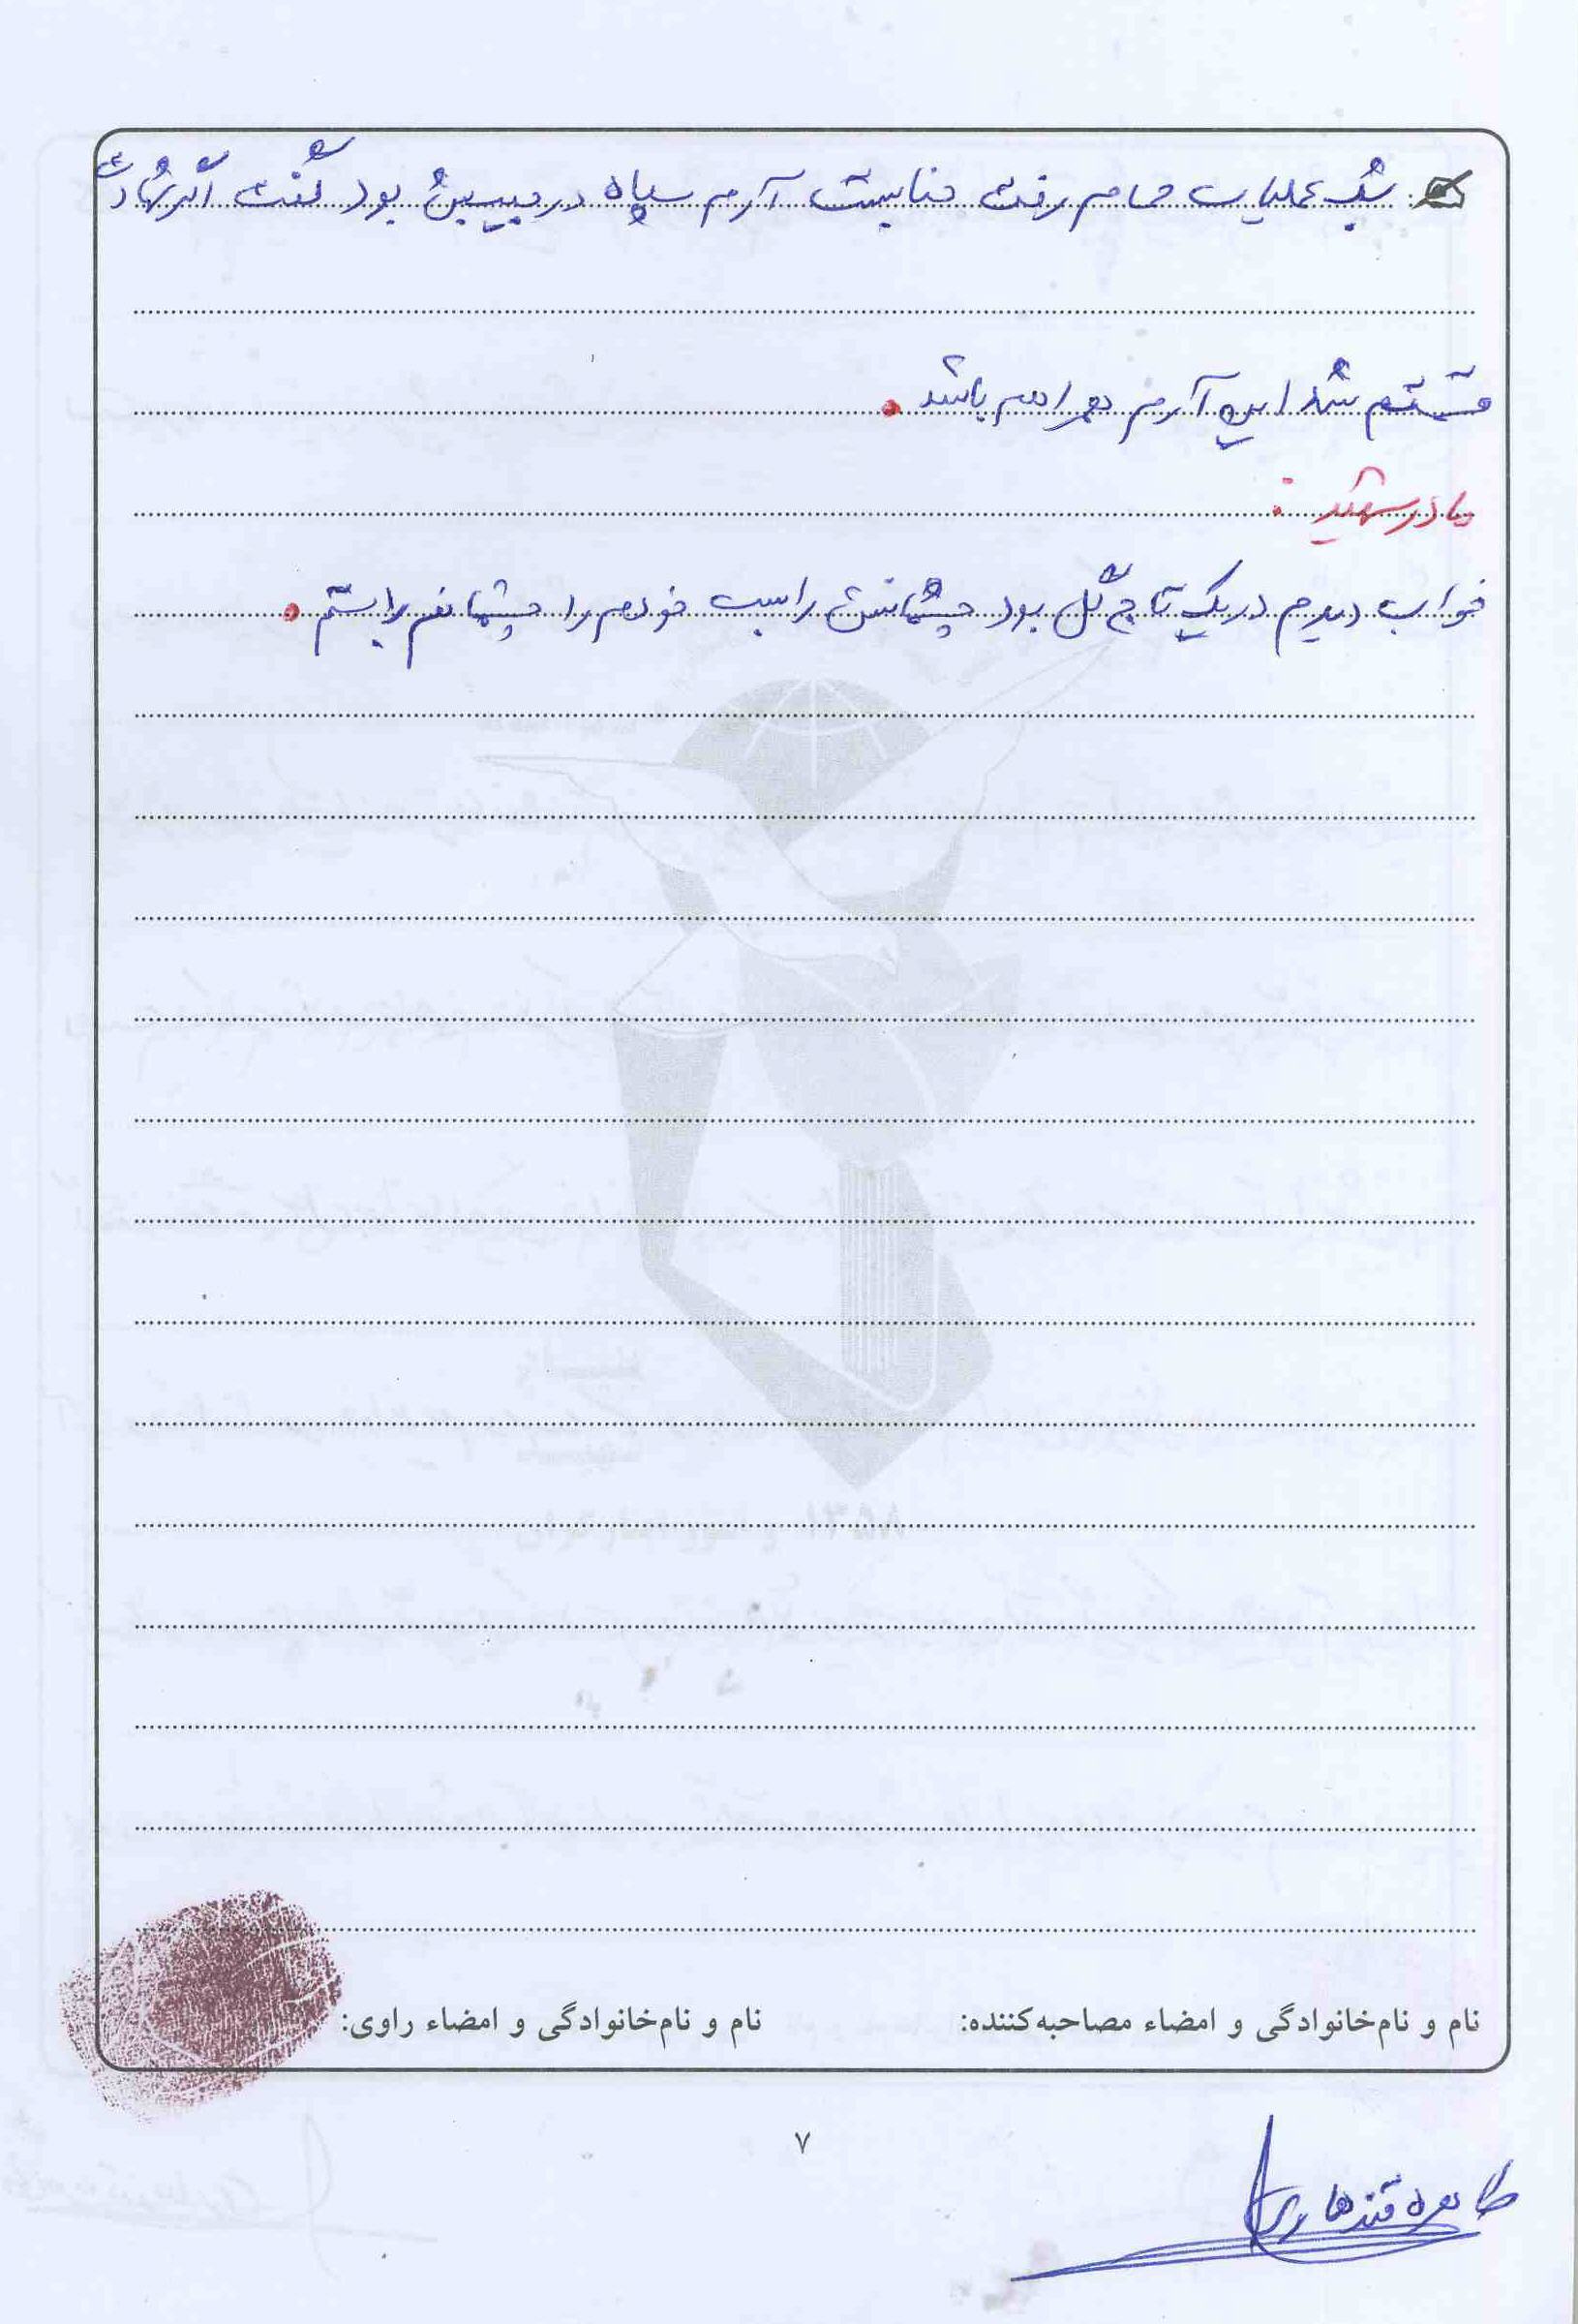 شب عملیات حمام رفت حنا بست آرم سپاه در جیبش بود گفت اگر شهادت
قسمتم شد این آرم همراهم باشد.
مادر شهید:
خواب دیدم در یک تاج گل بود چشمانش را بست خودم را چشمانم را بستم.
نام و نام‌خانوادگی و امضاء مصاحبه‌کننده: نام و نام‌خانوادگی و امضاء راوی:
۷
طاهره قندهاری